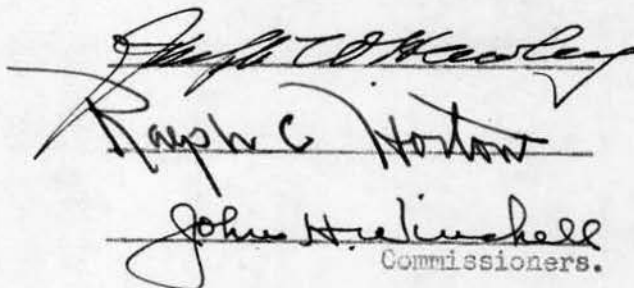 Joseph W. Hawley
Ralph C. Horton
John H. Winchell
Commissioners.